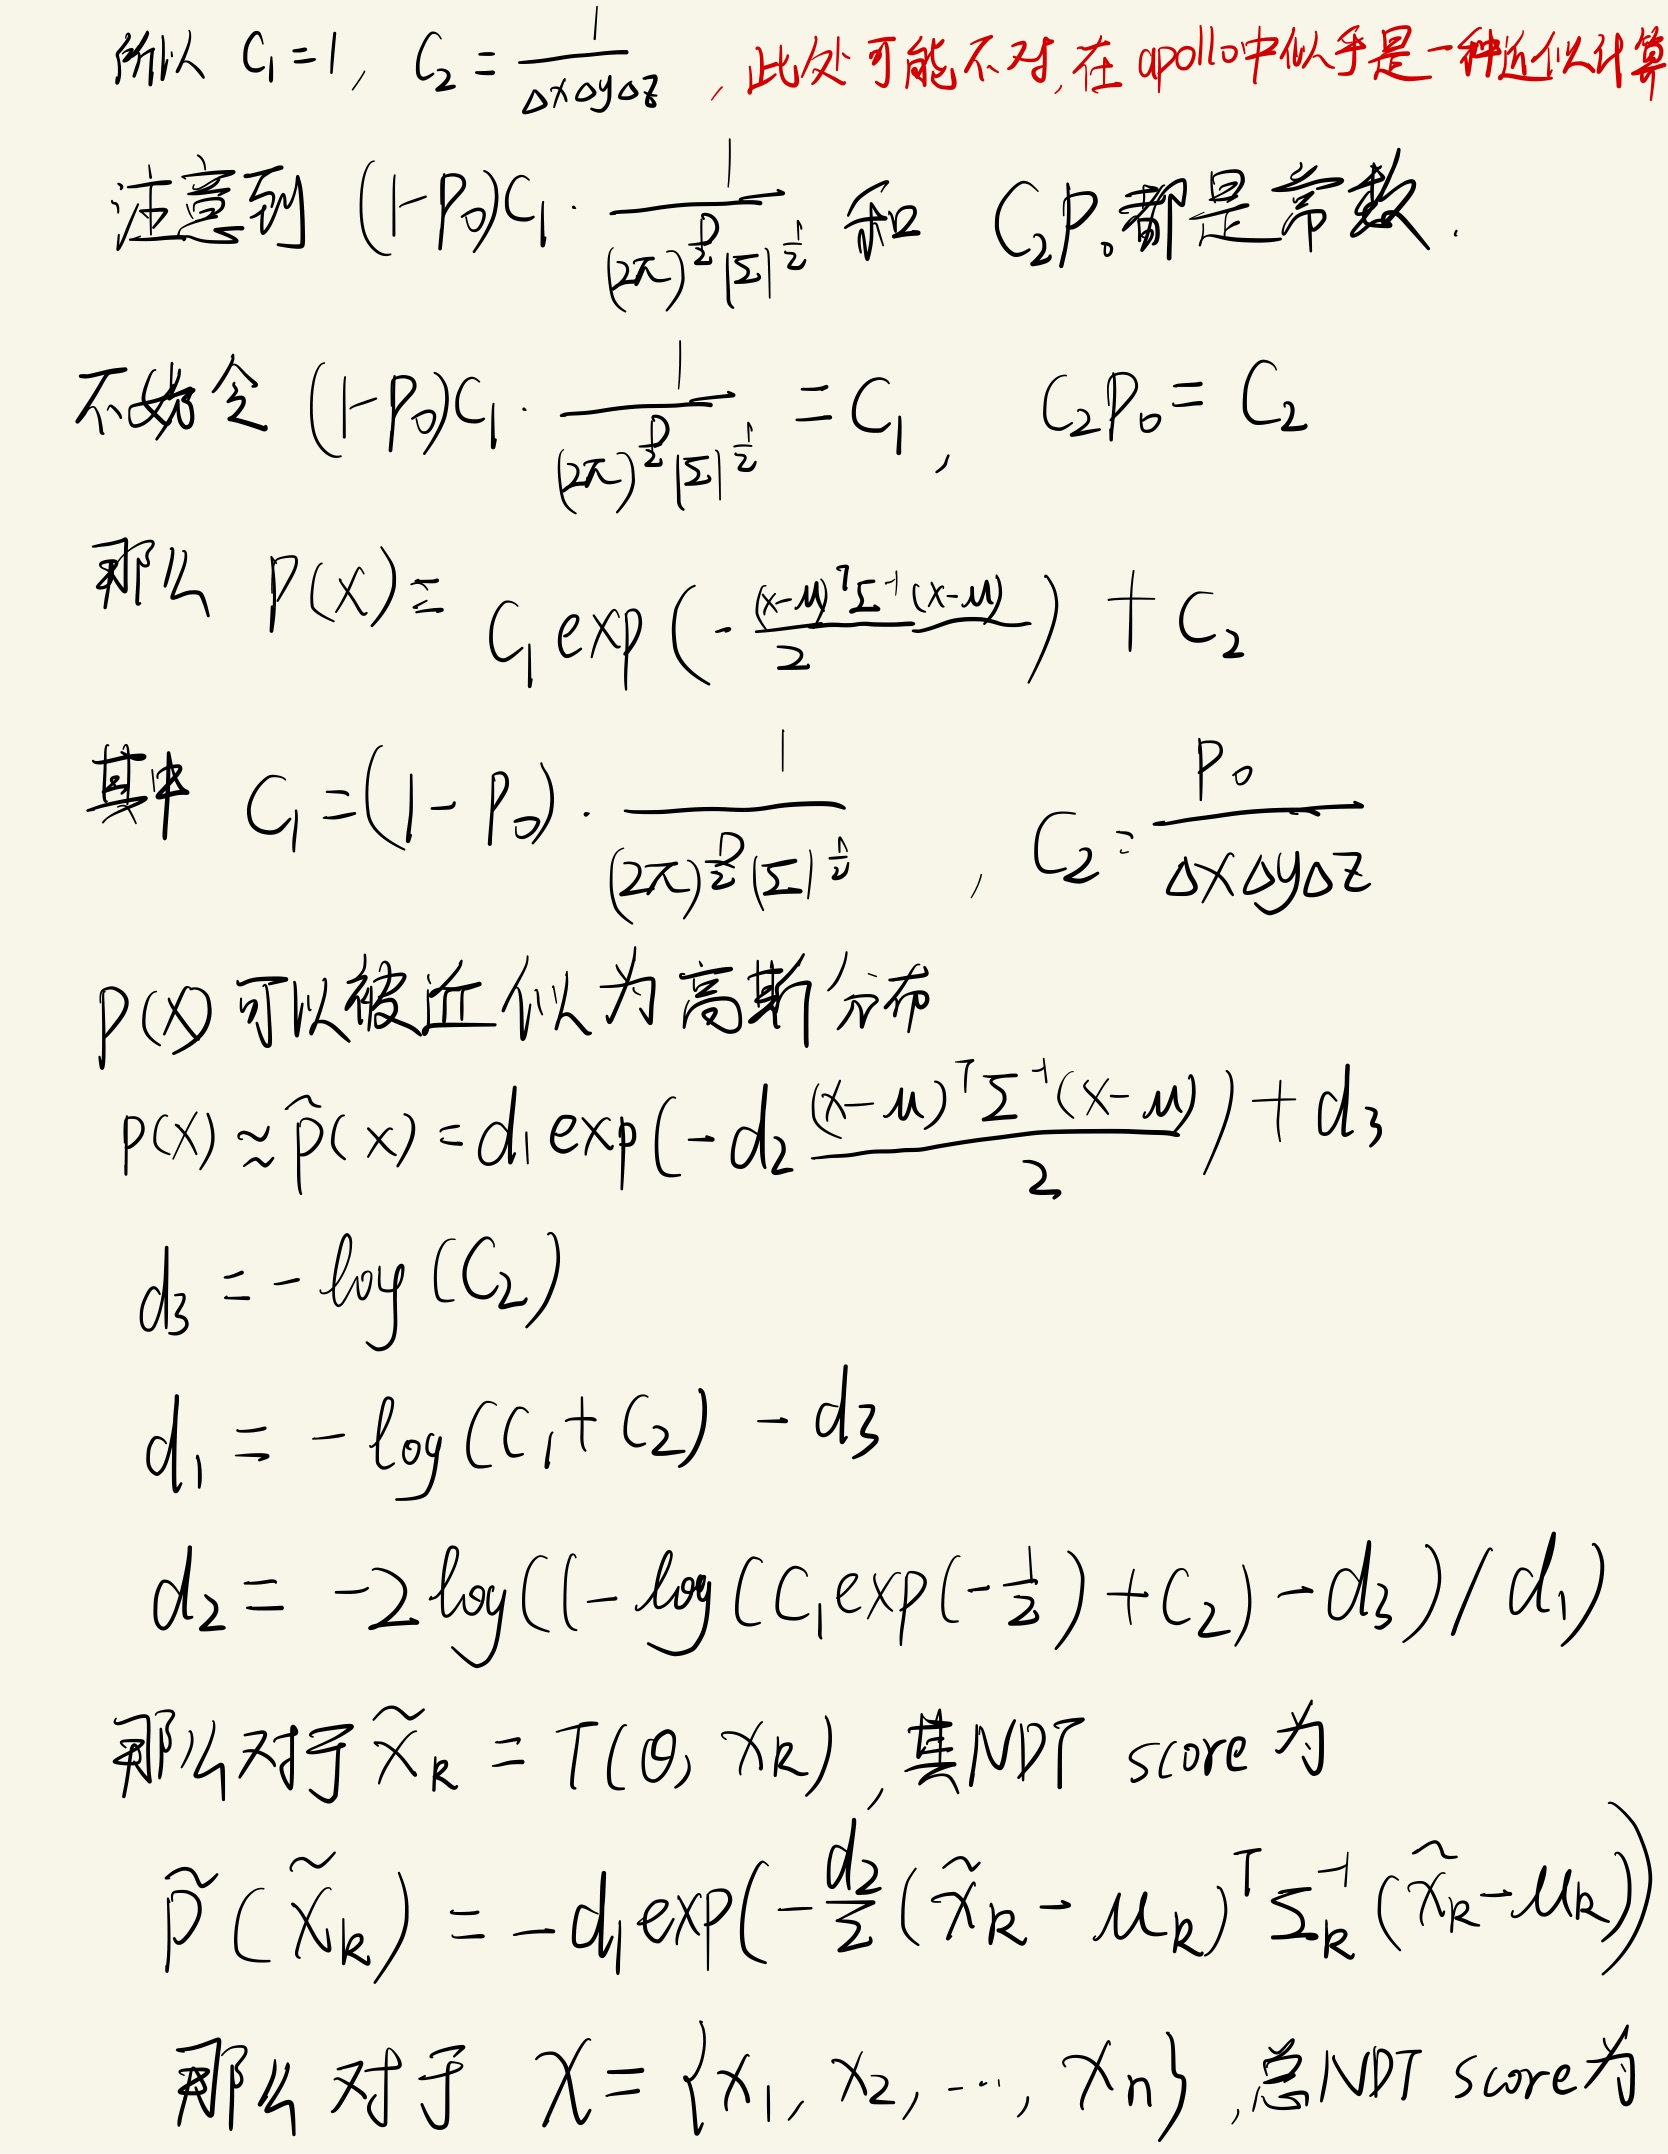 所以 C₁ = 1, C₂ = 1/(ΔxΔyΔz) , 此处可能不对,在apollo中似乎是一种近似计算
注意到 (1-P₀)C₁ · 1/((2π)^(D/2)|Σ|^(1/2)) 和 C₂P₀都是常数.
不妨令 (1-P₀)C₁ · 1/((2π)^(D/2)|Σ|^(1/2)) = C₁, C₂P₀ = C₂
那么 P(X) = C₁ exp(-(x-μ)ᵀΣ⁻¹(x-μ)/2) + C₂
其中 C₁ = (1-P₀) · 1/((2π)^(D/2)|Σ|^(1/2)) , C₂ = P₀/(ΔxΔyΔz)
P(X) 可以被近似为高斯分布
P(X) ≈ p̃(x) = d₁ exp(-d₂ (x-μ)ᵀΣ⁻¹(x-μ)/2) + d₃
d₃ = -log(C₂)
d₁ = -log(C₁+C₂) - d₃
d₂ = -2log((-log(C₁exp(-1/2)+C₂)-d₃)/d₁)
那么对于 x̃ₖ = T(θ, xₖ), 其NDT score 为
p̃(x̃ₖ) = -d₁exp(-d₂/2 (x̃ₖ-μₖ)ᵀΣₖ⁻¹(x̃ₖ-μₖ))
那么对于 X = {x₁, x₂, ..., xₙ}, 总NDT score为